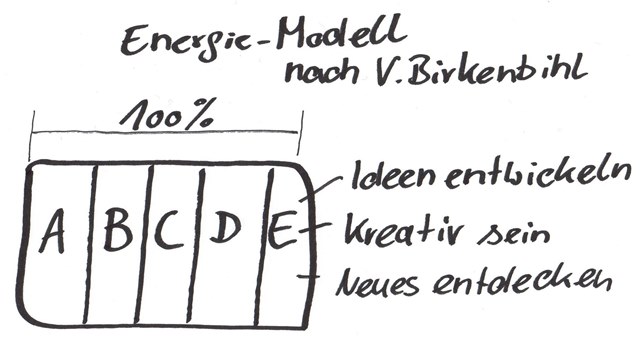 Energie-Modell
nach V. Birkenbihl
100%
A B C D E
Ideen entwickeln
Kreativ sein
Neues entdecken